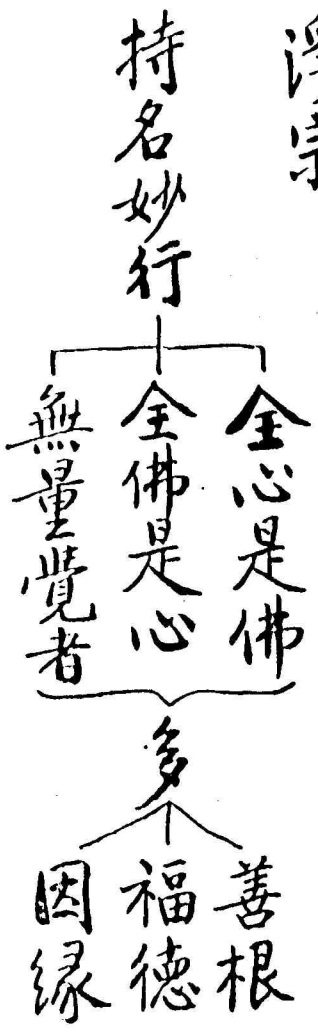 淨宗
持名妙行
全心是佛
全佛是心
無量覺者
多
善根
福德
因緣